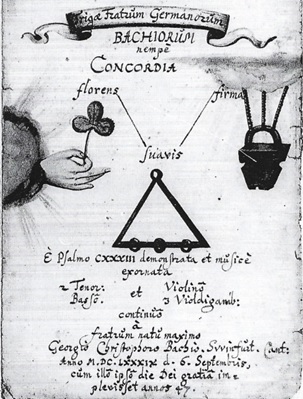 Trigæ Fratrum Germanorum
BACHIORUM
nempè
CONCORDIA
florens
firma
suavis
È Psalmo CXXXIII demonstrata et musicè
exornata
2 Tenor: et Violinô
Bassô. 3 Violdigamb:
continuô
à
fratrum natu maximo
Georgio Christophoro Bachio. Svvinfurt. Cant:
Anno M.DC.LXXXIX d. 6. Septembris,
cùm illô ipsô die Dei gratiâ im=
plevisset annos 47.